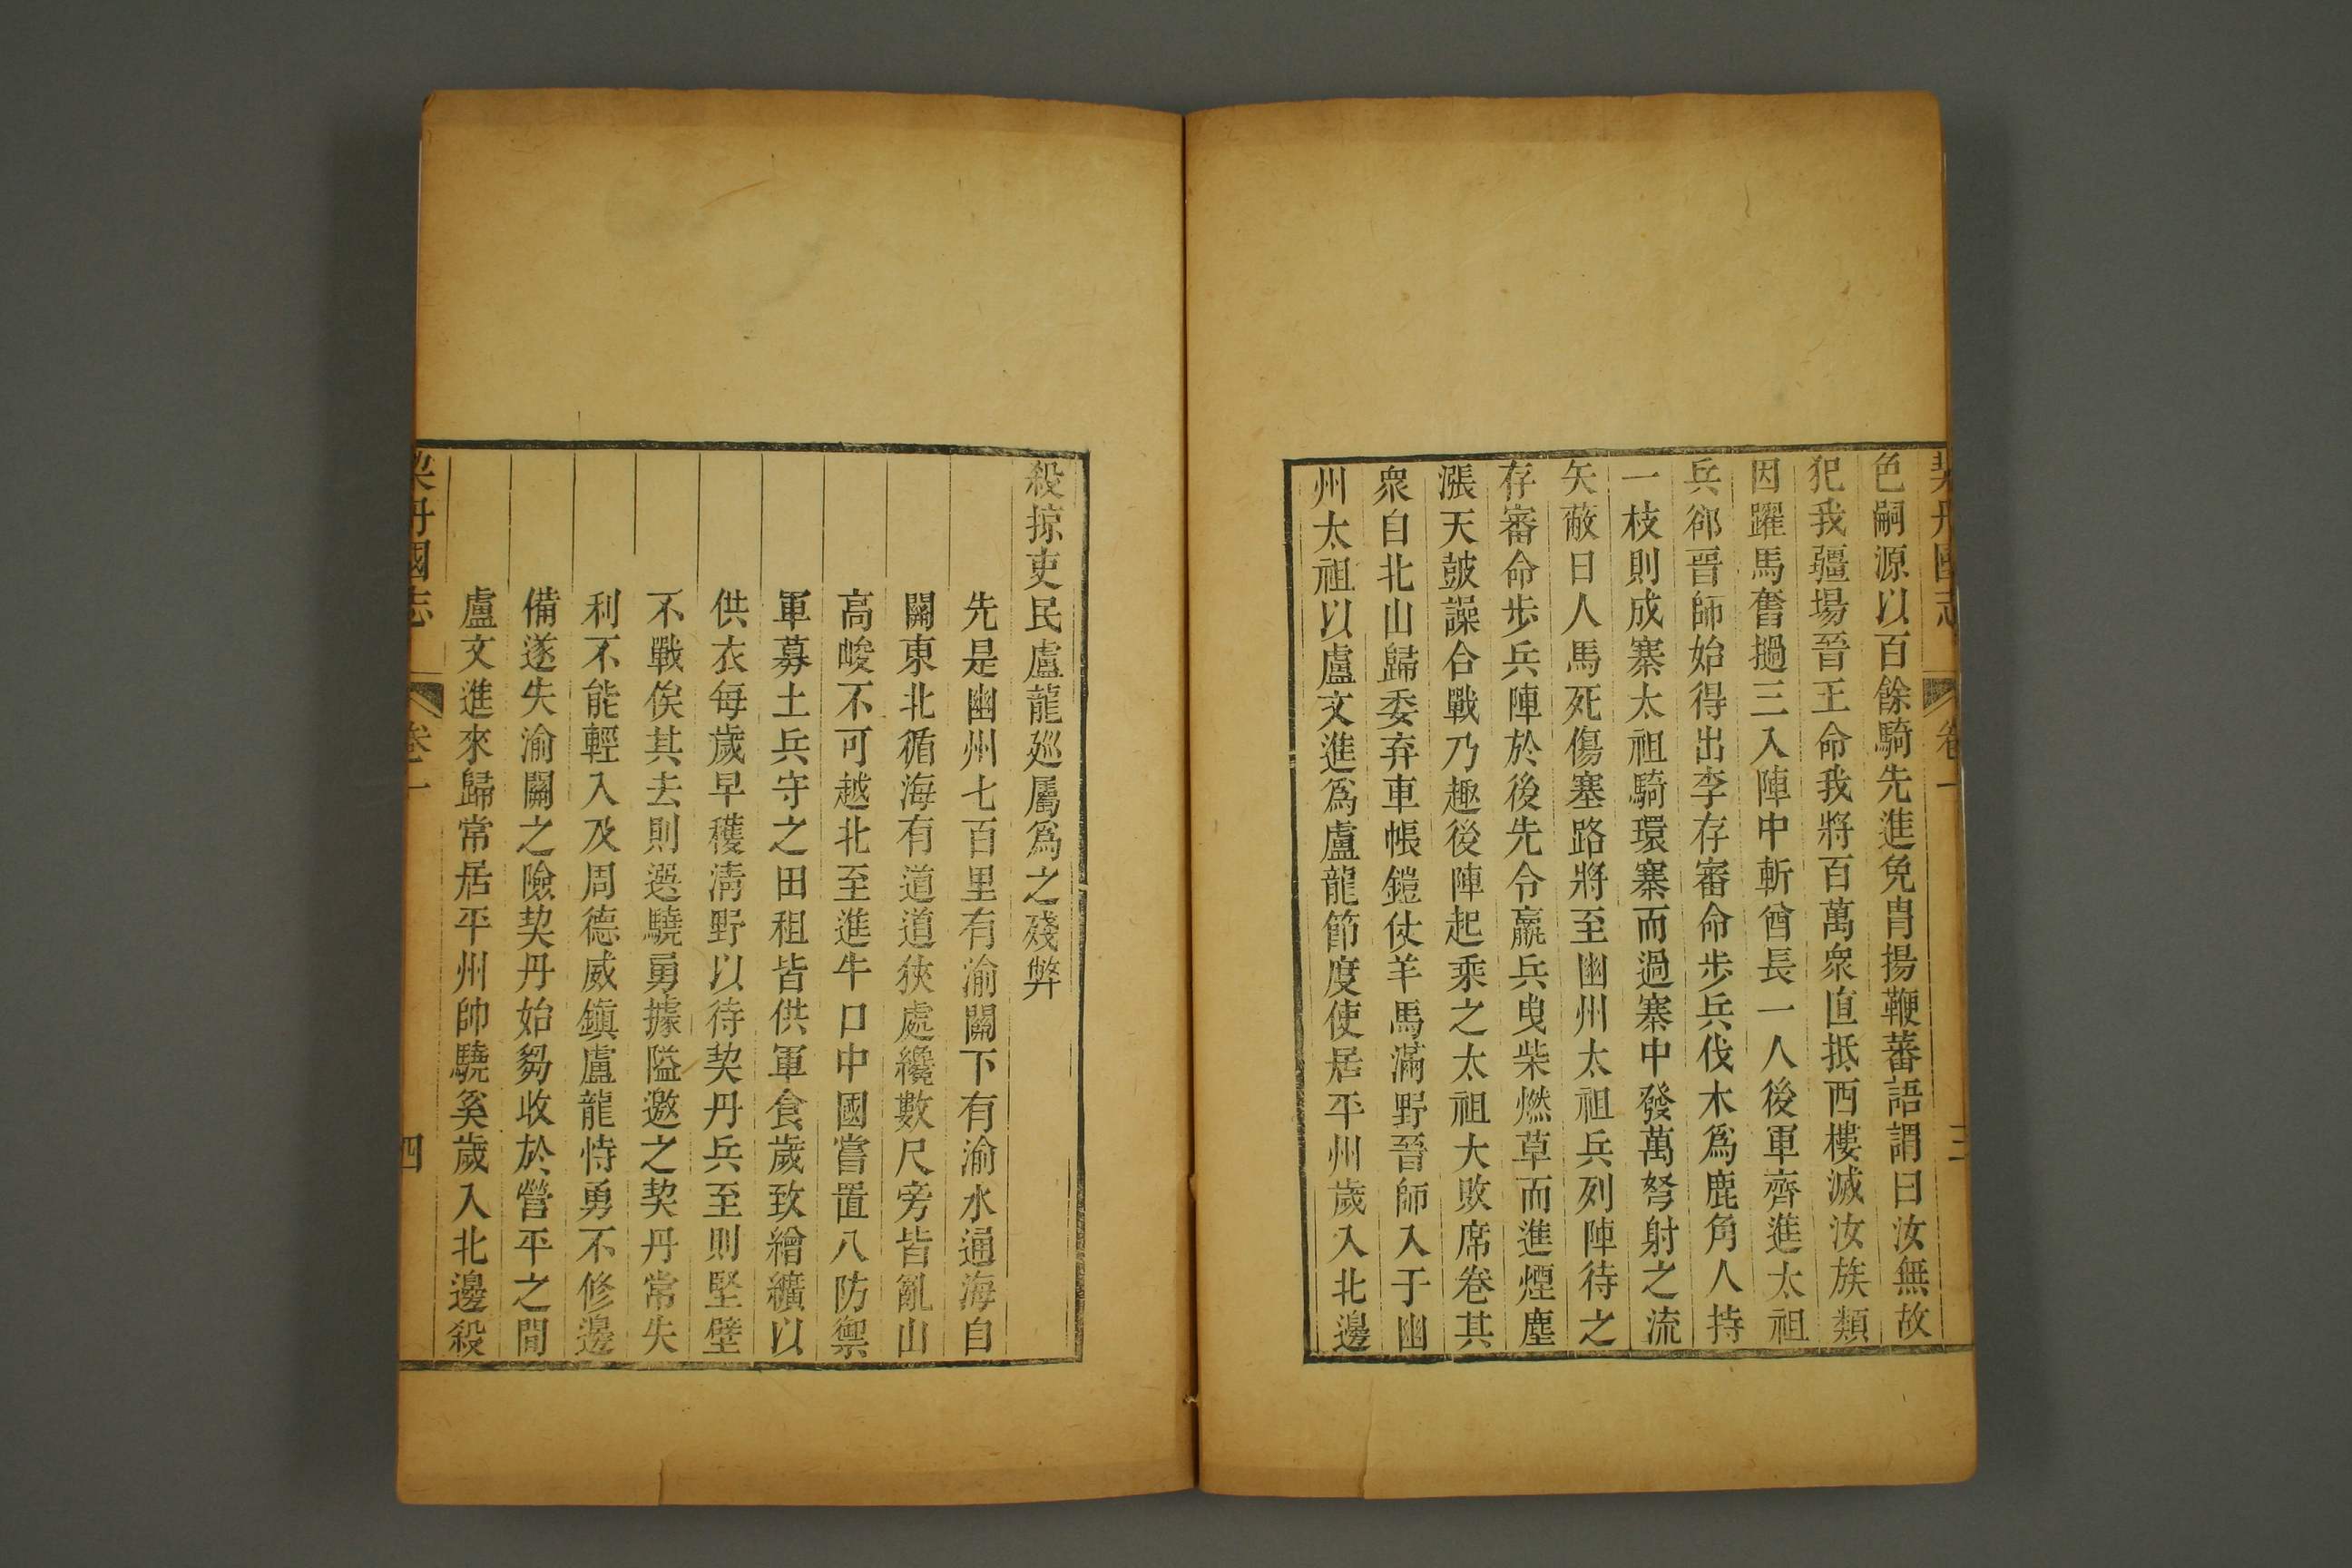 契丹國志 卷一 三
色嗣源以百餘騎先進免胄揚鞭蕃語謂曰汝無故
犯我疆場晉王命我將百萬衆直抵西樓滅汝族類
因躍馬奮撾三入陣中斬酋長一人後軍齊進太祖
兵郤晉師始得出李存審命步兵伐木爲鹿角人持
一枝則成寨太祖騎環寨而過寨中發萬弩射之流
矢蔽日人馬死傷塞路將至幽州太祖兵列陣待之
存審命步兵陣於後先令羸兵曳柴燃草而進煙塵
漲天鼓譟合戰乃趣後陣起乘之太祖大敗席卷其
衆自北山歸委弃車帳鎧仗羊馬滿野晉師入于幽
州太祖以盧文進爲盧龍節度使居平州歲入北邊
殺掠吏民盧龍廵屬爲之殘弊
先是幽州七百里有渝關下有渝水通海自
關東北循海有道道狹處纔數尺旁皆亂山
高峻不可越北至進牛口中國嘗置八防禦
軍募土兵守之田租皆供軍食歲致繒纊以
供衣每歲早穫清野以待契丹兵至則堅壁
不戰俟其去則選驍勇據隘邀之契丹常失
利不能輕入及周德威鎭盧龍恃勇不修邊
備遂失渝關之險契丹始芻收於營平之間
盧文進來歸常居平州帥驍奚歲入北邊殺
契丹國志 卷一 四